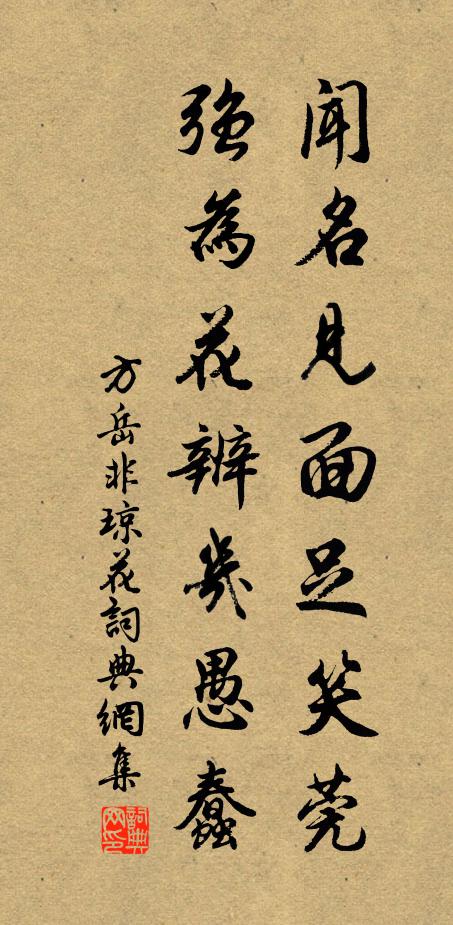 聞名見面足笑莞
強為花辨幾愚蠢
方岳非琼花詞典網集
詞典网印